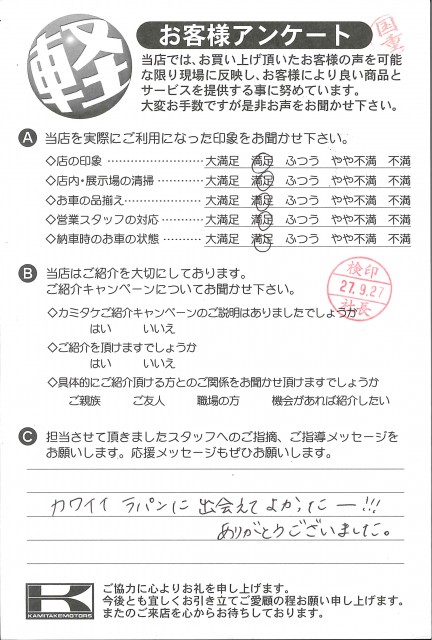 軽
お客様アンケート
国重
当店では、お買い上げ頂いたお客様の声を可能
な限り現場に反映し、お客様により良い商品と
サービスを提供する事に努めています。
大変お手数ですが是非お声をお聞かせ下さい。
A 当店を実際にご利用になった印象をお聞かせ下さい。
◇店の印象 …………………… 大満足 満足 ふつう やや不満 不満
◇店内・展示場の清掃 ………… 大満足 満足 ふつう やや不満 不満
◇お車の品揃え………………… 大満足 満足 ふつう やや不満 不満
◇営業スタッフの対応 ………… 大満足 満足 ふつう やや不満 不満
◇納車時のお車の状態 ………… 大満足 満足 ふつう やや不満 不満
B 当店はご紹介を大切にしてあります。
ご紹介キャンペーンについてお聞かせ下さい。
検印
27.9.27
社長
◇カミタケご紹介キャンペーンのご説明はありましたでしょうか
はい いいえ
◇ご紹介を頂けますでしょうか
はい いいえ
◇具体的にご紹介頂ける方とのご関係をお聞かせ頂けますでしょうか
ご親族 ご友人 職場の方 機会があれば紹介したい
C 担当させて頂きましたスタッフへのご指摘、ご指導メッセージを
お願いします。応援メッセージもぜひお願いします。
カワイイ ラパンに 出会えてよかったー!!!
ありがとうございました。
K
KAMITAKEMOTORS
ご協力に心よりお礼を申し上げます。
今後とも宜しくお引き立てご愛顧の程お願い申し上げます。
またのご来店を心からお待ちしております。